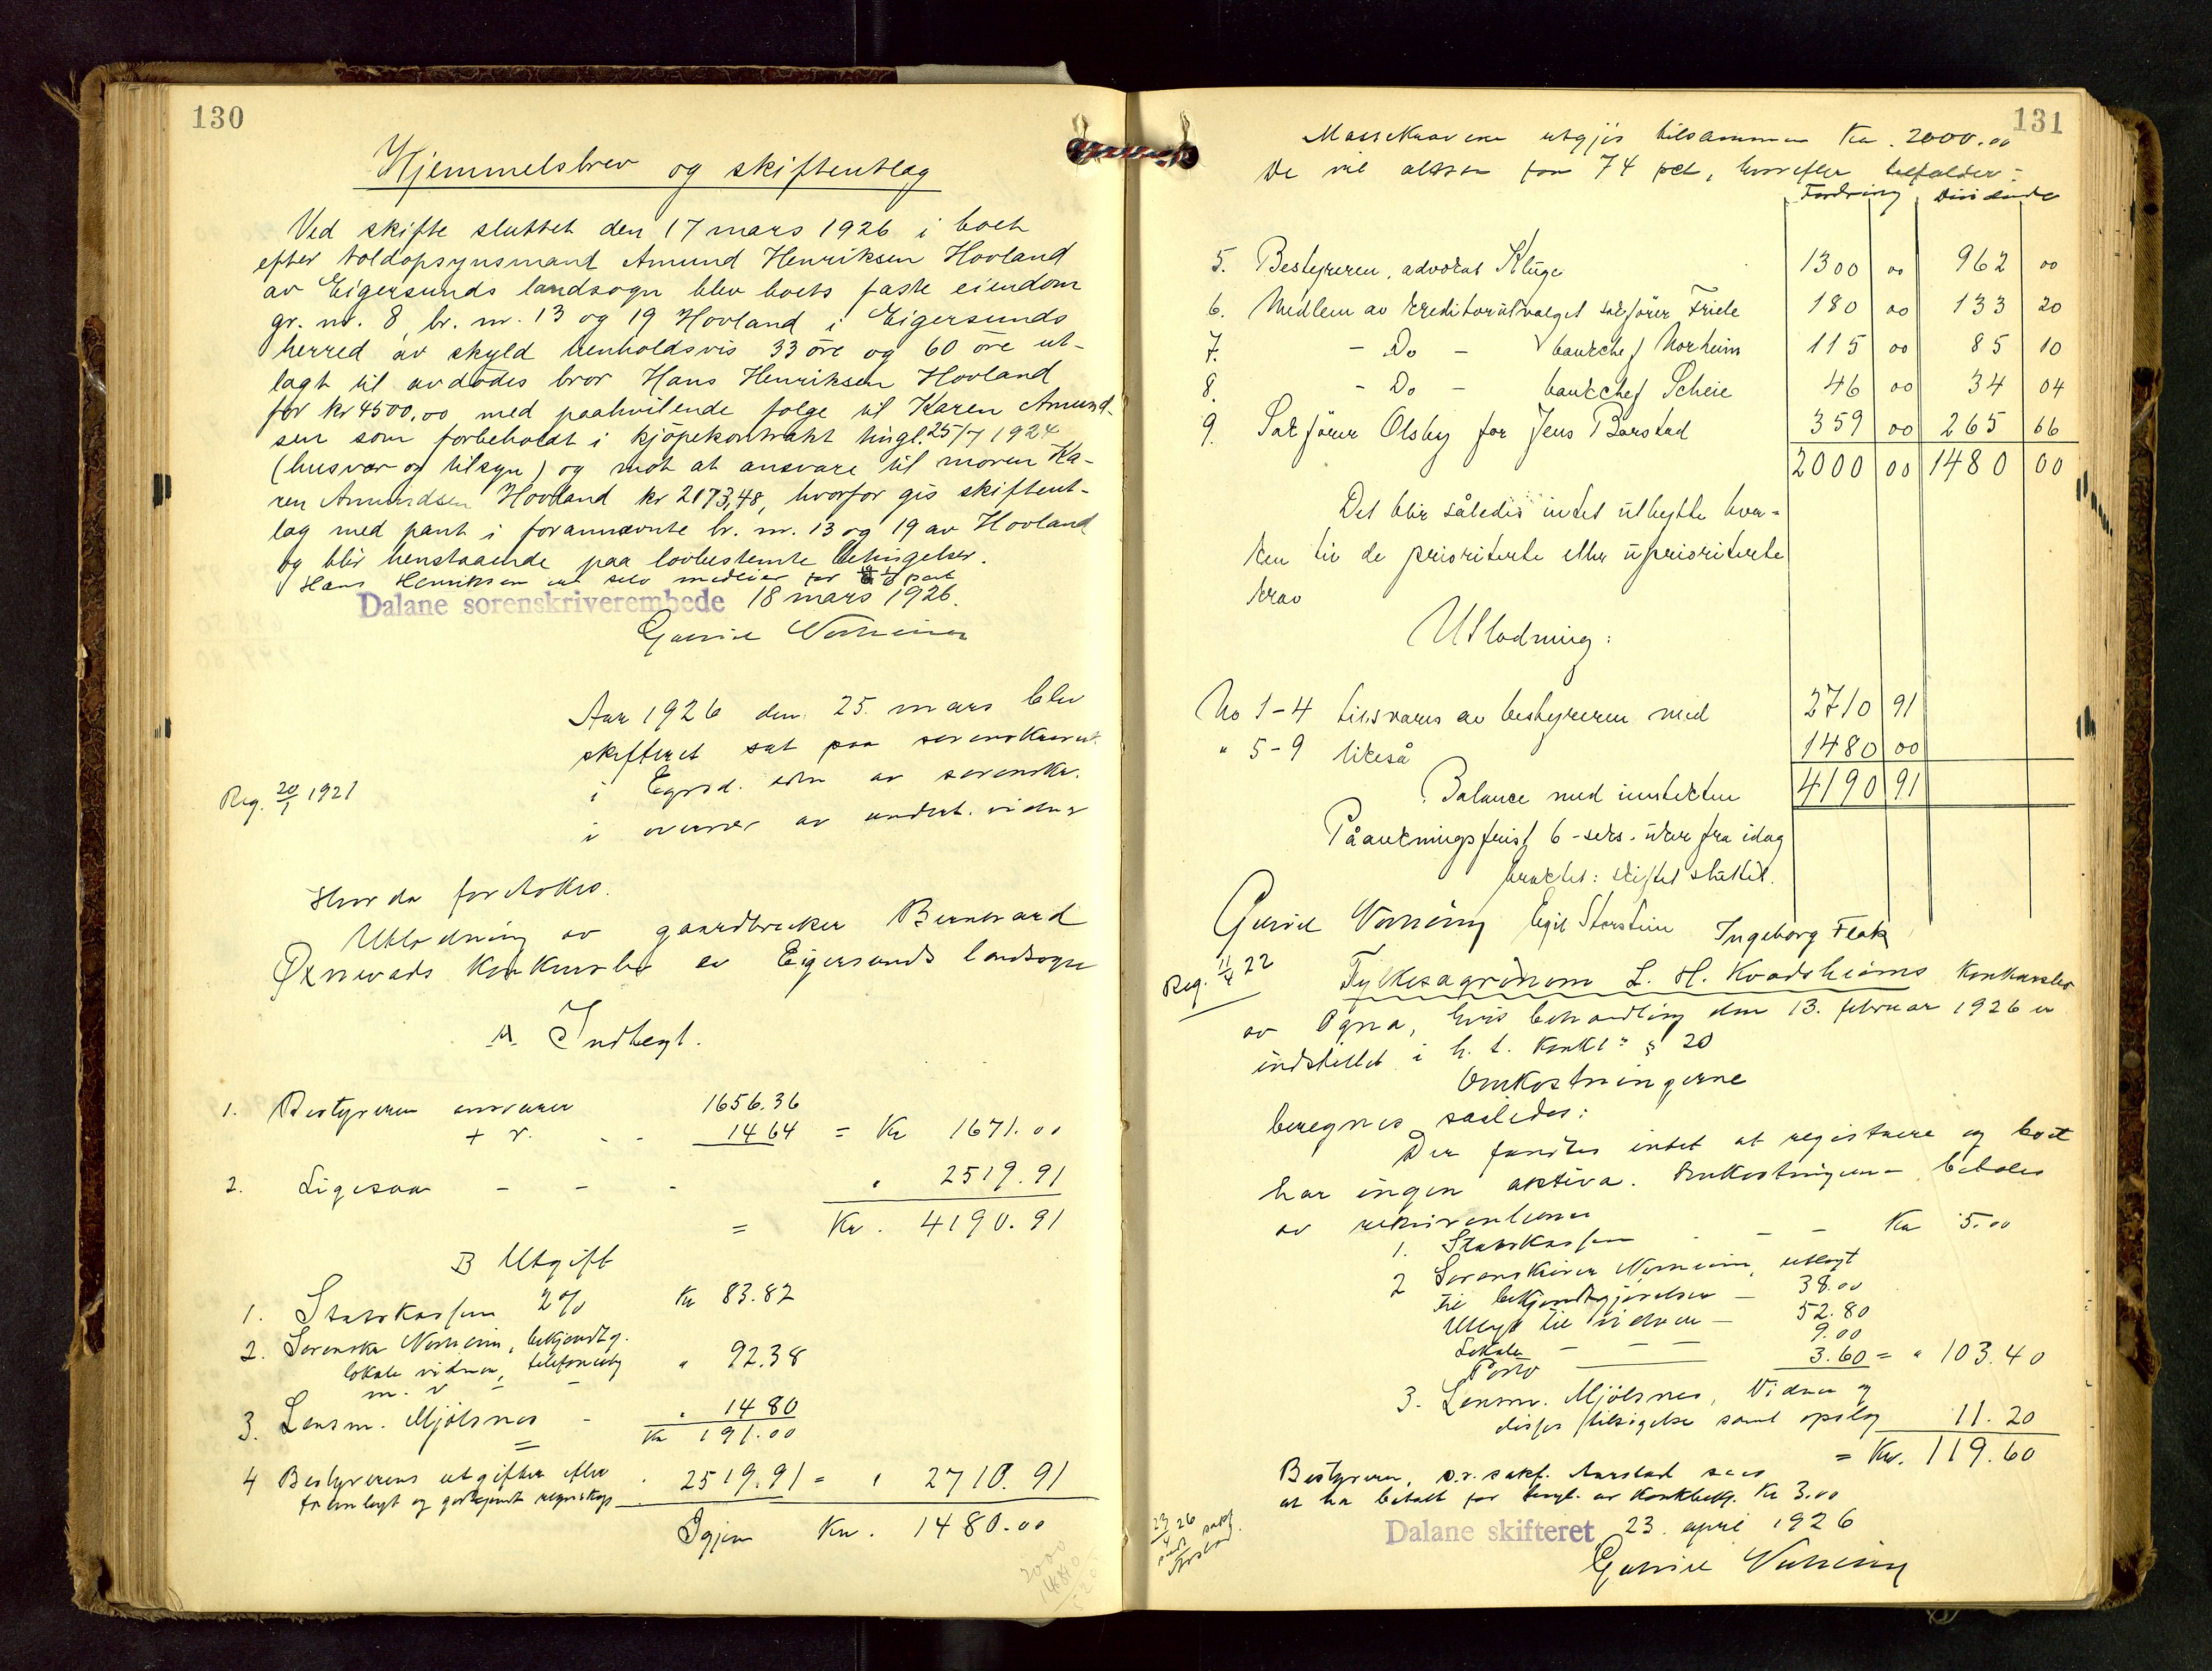 130
Hjemmelsbrev og skifteutlag
Ved skifte sluttet den 17 mars 1926 i boet
efter toldopsynsmand Amund Henriksen Hovland
av Eigersunds landsogn blev boets faste eiendom
gr. nr. 8, br. nr. 13 og 19 Hovland i Eigersunds
herred av skyld henholdsvis 33 øre og 60 øre ut-
lagt til avdødes bror Hans Henriksen Hovland
for kr 4500,00 med paahvilende følge til Karen Amund-
sen som forbeholdt i kjöpekontrakt tingl. 25/7 1924
(husvær og tilsyn) og mot at ansvare til moren Ka-
ren Amundsen Hovland kr 2173,48, hvorfor gis skifteut-
lag med pant i forannævnte br. nr. 13 og 19 av Hovland
og blir henstaaende paa lovbestemte betingelser.
Hans Henriksen var selv medeier for part
Dalane sorenskriverembede 18 mars 1926.
Aar 1926 den 25. mars blev
skifteret sat paa sorenskrverk.
i Egrsd. adm av sorenskr.
i overvær av undert. vidner
Reg. 20/1 1921
Hvor da foretokes.
Utlodning av gaardbruker Bernhard
Øxnevads konkursbo av Eigersunds landsogn
A Indtegt.
1. Bestyreren ansvarer 1656.36
+ r. - - 14 64 = Kr 1671.00
2. Ligesaa - - - " 2519.91
= Kr. 4190.91
B Utgift
1. Statskassen 2% Kr 83.82
2. Sorenskr Norheim, bekjendtg.
lokale vidner, telefonutg " 92.38
m. v - -
3. Lensm. Mjölsnes - " 14 80
Kr 191.00
4 Bestyrerens utgifter efter . 2519.91 = " 2710.91
fremlagt og godkjendt regnskap
Igjen Kr. 1480.00
2000
1480
520
131
Massekravene utgjör tilsammen Kr. 2000.00
De vil altsaa faa 74 pct, hvorefter tilfalder:
Fordring Dividende
5. Bestyreren, advokat Kluge 1300 00 962 00
6. Medlem av kreditorutvalget sakfører Friele 180 00 133 20
7. - Do - bankchef Norheim 115 00 85 10
8. - Do - bankchef Scheie 46 00 34 04
9. Sakfører Olsby for Jens Barstad 359 00 265 66
2000 00 1480 00
Det blir således intet utbytte hver-
ken til de prioriterte eller uprioriterte
krav
Utlodning:
No 1-4 tilsvares av bestyreren med 2710 91
" 5-9 likeså 1480 00
Balance med inntekten 4190 91
Påankningsfrist 6 - seks - uker fra idag
Skiftet sluttet.
Norheim Egil Storstein Ingeborg Fleak
Reg. 11/4 22
Fylkesagronom L. H. Kvadsheims konkursbo
av Ogna, hvis behandling den 13. februar 1926 er
indstillet i h. t. konkl: § 20
Omkostningerne
beregnes saaledes:
Der fandtes intet at registrere og boet
har ingen aktiva. Omkostningerne betales
av rekvirenterne
1. Statskassen - - Kr 5.00
2 Sorenskriver Norheim, utlagt
til bekjendtgjørelser - 38.00
Utlagt til vidner - 52.80
Lokale - - - 9.00
Porto 3.60 = " 103.40
3. Lensm. Mjölsnes, Vidner og
disses tilsigelse samt opslag 11.20
= Kr. 119.60
Bestyreren, o.r.sakf. Aarstad sees
at ha betalt for tingl. av konkbek. Kr 3.00
23/4 26
sendt sakf.
Aarstad
Dalane skifteret 23. april 1926
Norheim